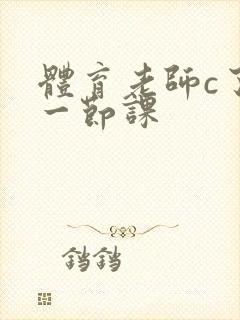 體育老師c了
一節課
鐺鐺